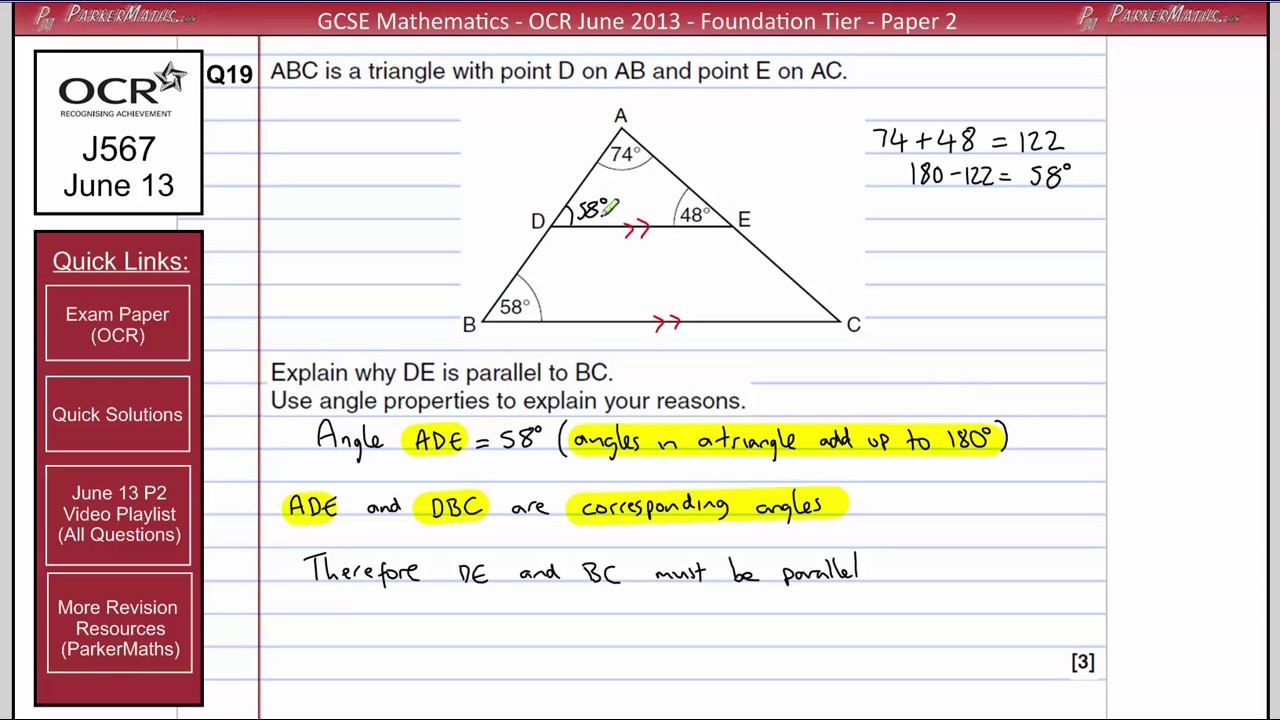 PM PARKERMATHS.COM
GCSE Mathematics - OCR June 2013 - Foundation Tier - Paper 2
PM PARKERMATHS.COM
OCR
RECOGNISING ACHIEVEMENT
J567
June 13
Quick Links:
Exam Paper
(OCR)
Quick Solutions
June 13 P2
Video Playlist
(All Questions)
More Revision
Resources
(ParkerMaths)
Q19 ABC is a triangle with point D on AB and point E on AC.
A
74°
D 58° 48° E
58°
B C
74 + 48 = 122
180 - 122 = 58°
Explain why DE is parallel to BC.
Use angle properties to explain your reasons.
Angle ADE = 58° (angles in a triangle add up to 180°)
ADE and DBC are corresponding angles
Therefore DE and BC must be parallel
[3]